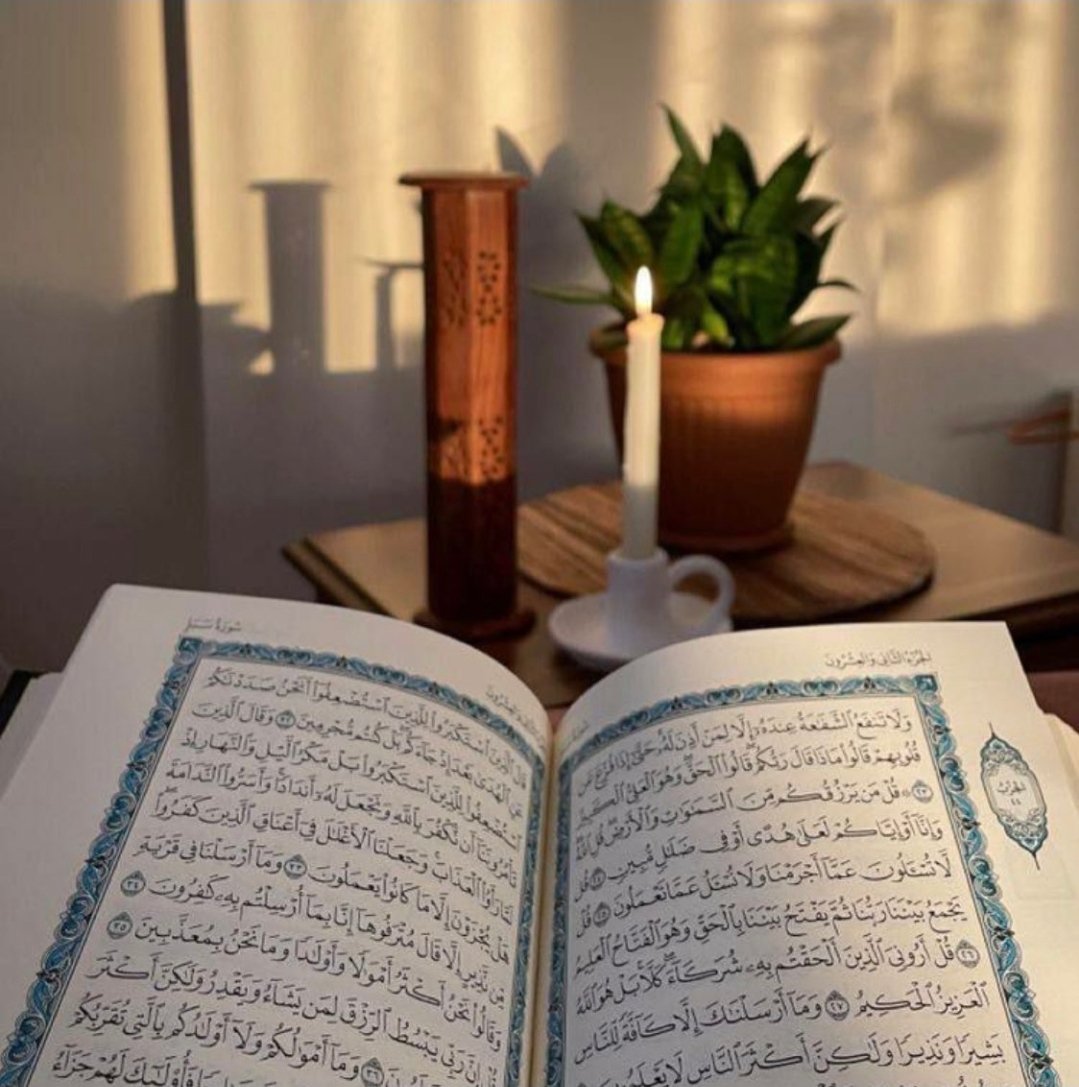 الجزء الثاني والعشرون
وَلَا تَنفَعُ ٱلشَّفَٰعَةُ عِندَهُۥٓ إِلَّا لِمَنْ أَذِنَ لَهُۥۚ حَتَّىٰٓ إِذَا فُزِّعَ عَن
قُلُوبِهِمْ قَالُوا۟ مَاذَا قَالَ رَبُّكُمْۖ قَالُوا۟ ٱلْحَقَّۖ وَهُوَ ٱلْعَلِىُّ ٱلْكَبِيرُ
٢٣ ۞ قُلْ مَن يَرْزُقُكُم مِّنَ ٱلسَّمَٰوَٰتِ وَٱلْأَرْضِۖ قُلِ ٱللَّهُۖ
وَإِنَّآ أَوْ إِيَّاكُمْ لَعَلَىٰ هُدًى أَوْ فِى ضَلَٰلٍ مُّبِينٍ ٢٤ قُل
لَّا تُسْـَٔلُونَ عَمَّآ أَجْرَمْنَا وَلَا نُسْـَٔلُ عَمَّا تَعْمَلُونَ ٢٥ قُلْ
يَجْمَعُ بَيْنَنَا رَبُّنَا ثُمَّ يَفْتَحُ بَيْنَنَا بِٱلْحَقِّ وَهُوَ ٱلْفَتَّاحُ ٱلْعَلِيمُ
٢٦ قُلْ أَرُونِىَ ٱلَّذِينَ أَلْحَقْتُم بِهِۦ شُرَكَآءَۖ كَلَّاۚ بَلْ هُوَ ٱللَّهُ
ٱلْعَزِيزُ ٱلْحَكِيمُ ٢٧ وَمَآ أَرْسَلْنَٰكَ إِلَّا كَآفَّةً لِّلنَّاسِ
بَشِيرًا وَنَذِيرًا وَلَٰكِنَّ أَكْثَرَ ٱلنَّاسِ لَا يَعْلَمُونَ
الحزب
٤٤
سورة سبإ
قَالَ ٱلَّذِينَ ٱسْتَكْبَرُوا۟ لِلَّذِينَ ٱسْتُضْعِفُوٓا۟ أَنَحْنُ صَدَدْنَٰكُمْ
عَنِ ٱلْهُدَىٰ بَعْدَ إِذْ جَآءَكُمۖ بَلْ كُنتُم مُّجْرِمِينَ ٣٢ وَقَالَ ٱلَّذِينَ
ٱسْتُضْعِفُوا۟ لِلَّذِينَ ٱسْتَكْبَرُوا۟ بَلْ مَكْرُ ٱلَّيْلِ وَٱلنَّهَارِ إِذْ
تَأْمُرُونَنَآ أَن نَّكْفُرَ بِٱللَّهِ وَنَجْعَلَ لَهُۥٓ أَندَادًاۚ وَأَسَرُّوا۟ ٱلنَّدَامَةَ
لَمَّا رَأَوُا۟ ٱلْعَذَابَۚ وَجَعَلْنَا ٱلْأَغْلَٰلَ فِىٓ أَعْنَاقِ ٱلَّذِينَ كَفَرُوا۟ۖ
هَلْ يُجْزَوْنَ إِلَّا مَا كَانُوا۟ يَعْمَلُونَ ٣٣ وَمَآ أَرْسَلْنَا فِى قَرْيَةٍ
مِّن نَّذِيرٍ إِلَّا قَالَ مُتْرَفُوهَآ إِنَّا بِمَآ أُرْسِلْتُم بِهِۦ كَٰفِرُونَ ٣٤
وَقَالُوا۟ نَحْنُ أَكْثَرُ أَمْوَٰلًا وَأَوْلَٰدًا وَمَا نَحْنُ بِمُعَذَّبِينَ ٣٥
قُلْ إِنَّ رَبِّى يَبْسُطُ ٱلرِّزْقَ لِمَن يَشَآءُ وَيَقْدِرُ وَلَٰكِنَّ أَكْثَرَ
٣٦ وَمَآ أَمْوَٰلُكُمْ وَلَآ أَوْلَٰدُكُم بِٱلَّتِى تُقَرِّبُكُمْ
فَأُو۟لَٰٓئِكَ لَهُمْ جَزَآءُ